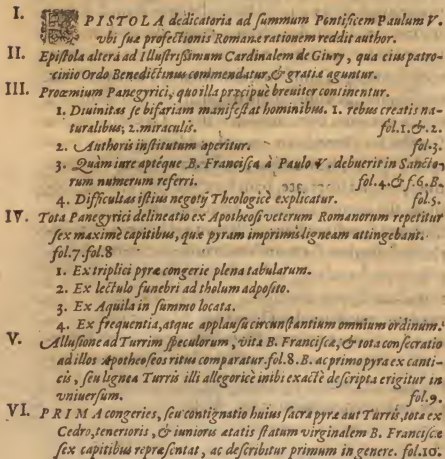 I. EPISTOLA dedicatoria ad summum Pontificem Paulum V.
vbi suæ profectionis Romanæ rationem reddit author.
II. Epistola altera ad Illustrissimum Cardinalem de Giury, qua eius patro-
cinio Ordo Benedictinus commendatur, & gratiæ aguntur.
III. Proœmium Panegyrici, quo illa præcipuè breuiter continentur.
1. Diuinitas se bifariam manifestat hominibus. 1. rebus creatis na-
turalibus; 2. miraculis. fol.1.&.2.
2. Authoris institutum aperitur. fol.3.
3. Quàm iure aptéque B. Francisca à Paulo V. debuerit in Sancto-
rum numerum referri. fol.4.& f.6.B.
4. Difficultas istius negotij Theologicè explicatur. fol.5.
IV. Tota Panegyrici delineatio ex Apotheosi veterum Romanorum repetitur
sex maximè capitibus, quæ pyram imprimis ligneam attingebant.
fol.7.fol.8
1. Ex triplici pyræ congerie plena tabularum.
2. Ex lectulo funebri ad tholum adposito.
3. Ex Aquila in summo locata.
4. Ex frequentia, atque applausu circunstantium omnium ordinum.
V. Allusione ad Turrim speculorum, vita B. Franciscæ, & tota consecratio
ad illos Apotheoseos ritus comparatur. fol.8.B. ac primo pyra ex canti-
cis, seu lignea Turris illi allegoricè inibi exactè descripta erigitur in
vniuersum. fol.9.
VI. PRIMA congeries, seu contignatio huius sacræ pyræ aut Turris, tota ex
Cedro, tenerioris, & iunioris ætatis statum virginalem B. Franciscæ
sex capitibus repræsentat, ac describitur primum in genere. fol.10.